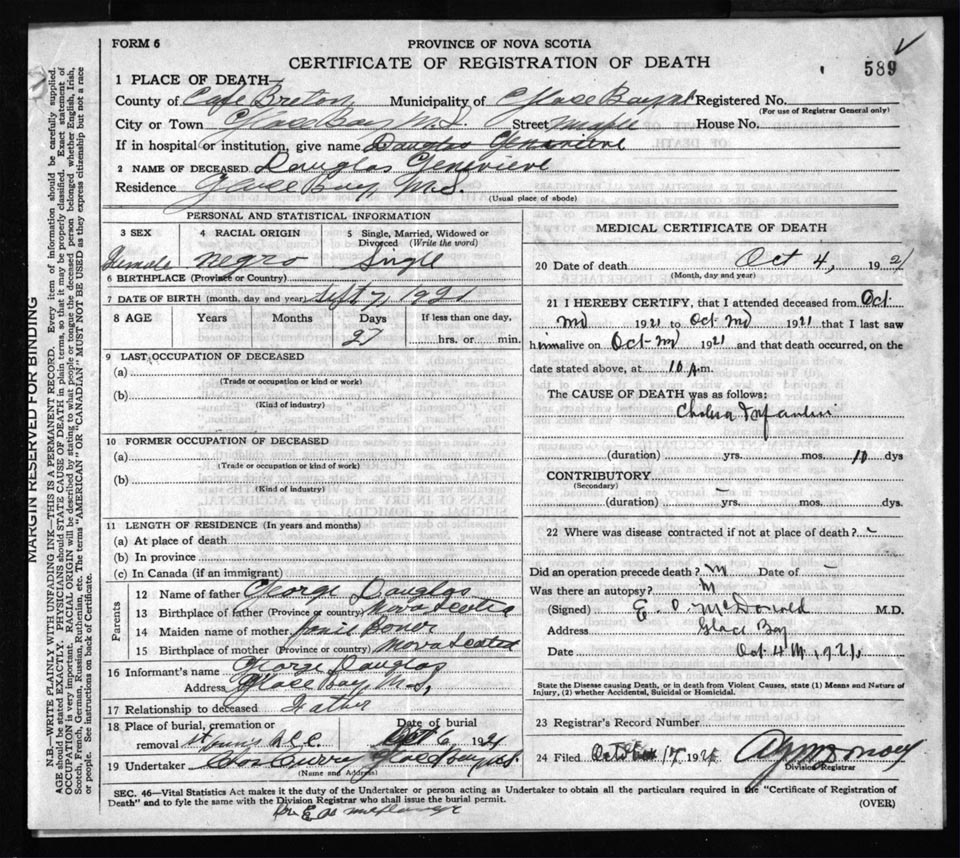 FORM 6
PROVINCE OF NOVA SCOTIA
CERTIFICATE OF REGISTRATION OF DEATH
589
1 PLACE OF DEATH—
County of Cape Breton Municipality of Glace Bay Registered No.
(For use of Registrar General only)
City or Town Glace Bay N.S. Street Maple House No.
If in hospital or institution, give name Douglas Genevieve
2 NAME OF DECEASED Douglas Genevieve
Residence Glace Bay N.S.
(Usual place of abode)
PERSONAL AND STATISTICAL INFORMATION
3 SEX 4 RACIAL ORIGIN 5 Single, Married, Widowed or Divorced (Write the word)
Female Negro Single
6 BIRTHPLACE (Province or Country)
7 DATE OF BIRTH (month, day and year) Sept 7, 1921
8 AGE Years Months Days If less than one day,
27 hrs. or min.
9 LAST OCCUPATION OF DECEASED
(a)
(Trade or occupation or kind or work)
(b)
(Kind of industry)
10 FORMER OCCUPATION OF DECEASED
(a)
(Trade or occupation or kind or work)
(b)
(Kind of industry)
11 LENGTH OF RESIDENCE (In years and months)
(a) At place of death
(b) In province
(c) In Canada (if an immigrant)
Parents
12 Name of father George Douglas
13 Birthplace of father (Province or country) Nova Scotia
14 Maiden name of mother
15 Birthplace of mother (Province or country) Nova Scotia
16 Informant's name George Douglas
Address Glace Bay N.S.
17 Relationship to deceased Father
18 Place of burial, cremation or Date of burial
removal Oct 6 1921
19 Undertaker Chas Curry Glace Bay N.S.
(Name and Address)
MEDICAL CERTIFICATE OF DEATH
20 Date of death Oct 4, 1921
(Month, day and year)
21 I HEREBY CERTIFY, that I attended deceased from Oct
1921 to Oct 1921 that I last saw
h alive on Oct 1921 and that death occurred, on the
date stated above, at 10 m.
The CAUSE OF DEATH was as follows:
Cholera Infantum
(duration) yrs. mos. 10 dys
CONTRIBUTORY
(Secondary)
(duration) – yrs. mos. dys.
22 Where was disease contracted if not at place of death? –
Did an operation precede death? Date of –
Was there an autopsy?
(Signed) McDonald M.D.
Address Glace Bay
Date Oct 4 1921
State the Disease causing Death, or in death from Violent Causes, state (1) Means and Nature of
Injury, (2) whether Accidental, Suicidal or Homicidal.
23 Registrar's Record Number
24 Filed 192
Division Registrar
SEC. 46—Vital Statistics Act makes it the duty of the Undertaker or person acting as Undertaker to obtain all the particulars required in the "Certificate of Registration of
Death" and to fyle the same with the Division Registrar who shall issue the burial permit. (OVER)
MARGIN RESERVED FOR BINDING
N.B.—WRITE PLAINLY WITH UNFADING INK—THIS IS A PERMANENT RECORD. Every item of information should be carefully supplied.
AGE should be stated EXACTLY. PHYSICIANS should STATE CAUSE OF DEATH in plain terms, so that it may be properly classified. Exact statement of
OCCUPATION is very important. RACIAL ORIGIN will be described by stating to what people or tongue the deceased person belonged whether English, Irish,
Scotch, French, German, Russian, Ruthenian, etc. The terms "AMERICAN" OR "CANADIAN" MUST NOT BE USED as they express citizenship but not a race
or people. See instructions on back of Certificate.